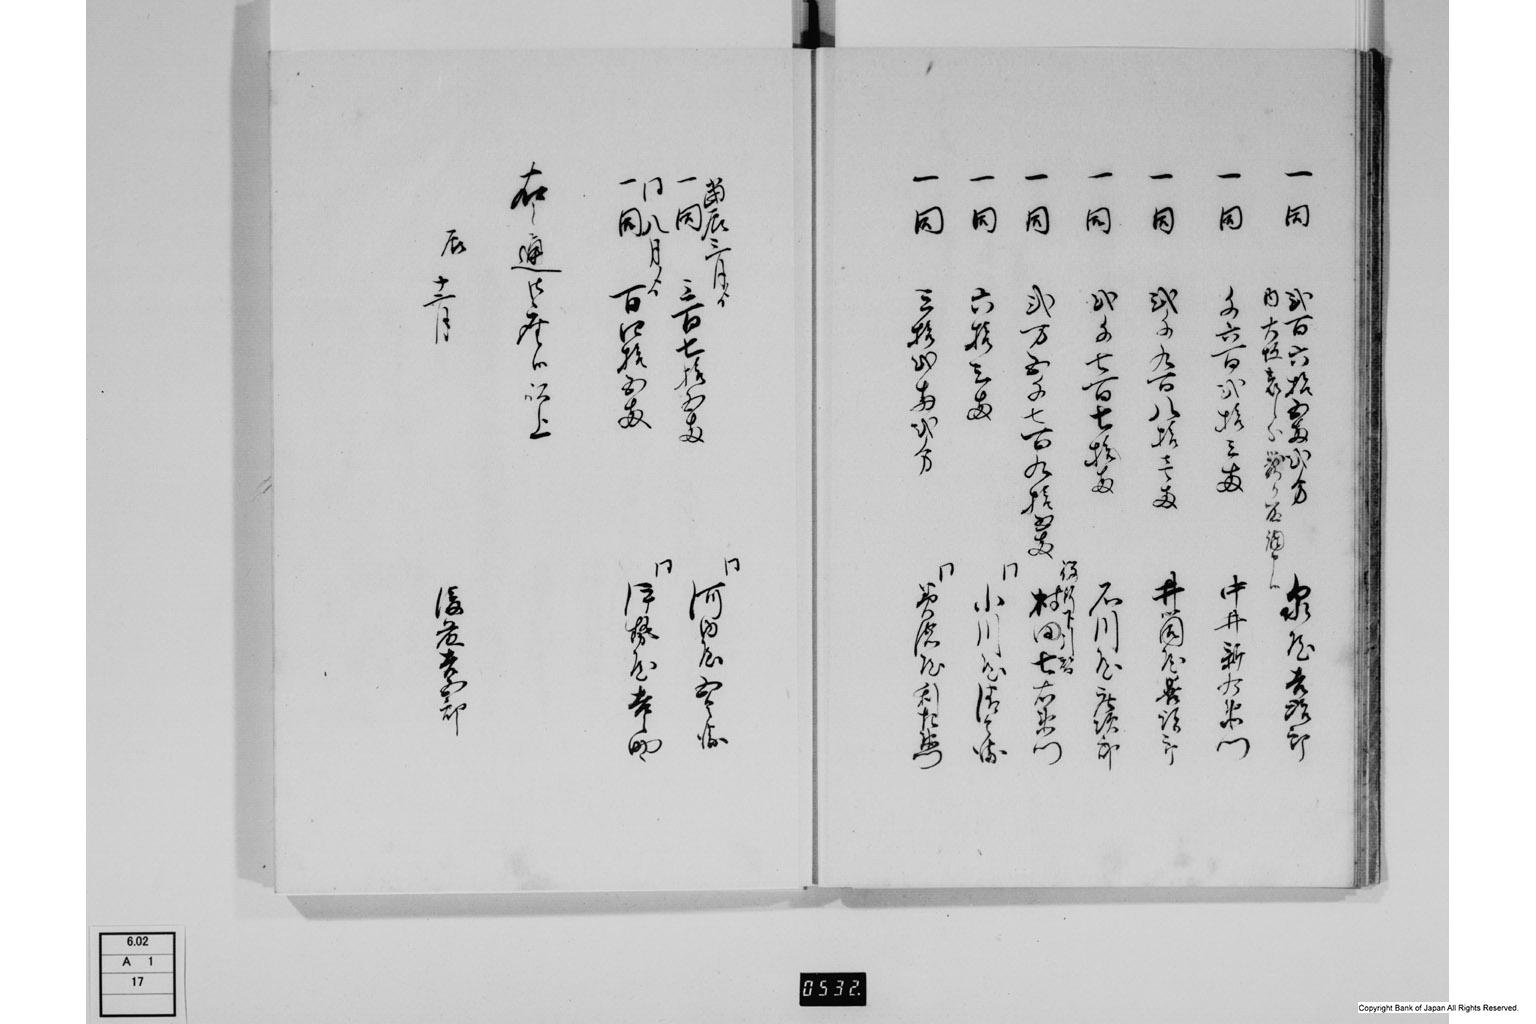 一同 弐百六拾五両弐分 泉屋吉次郎
内大坂表
一同 千六百弐拾三両 中井新右衛門
一同 弐千九百八拾壱両 井筒屋善次郎
一同 弐千七百七拾両 石川屋庄次郎
一同 弐万五千七百九拾五両 村田七右衛門
一同 六拾三両 同 小川屋清兵衛
一同 三拾弐両弐分 同 美濃屋利左衛門
当辰三月より
一同 三百七拾五両 同 河内屋五兵衛
同八月より
一同 百四拾五両 同 伊勢屋幸助
右之通御座候以上
辰 十二月
後藤吉五郎
6.02
A 1
17
0532.
Copyright Bank of Japan All Rights Reserved.